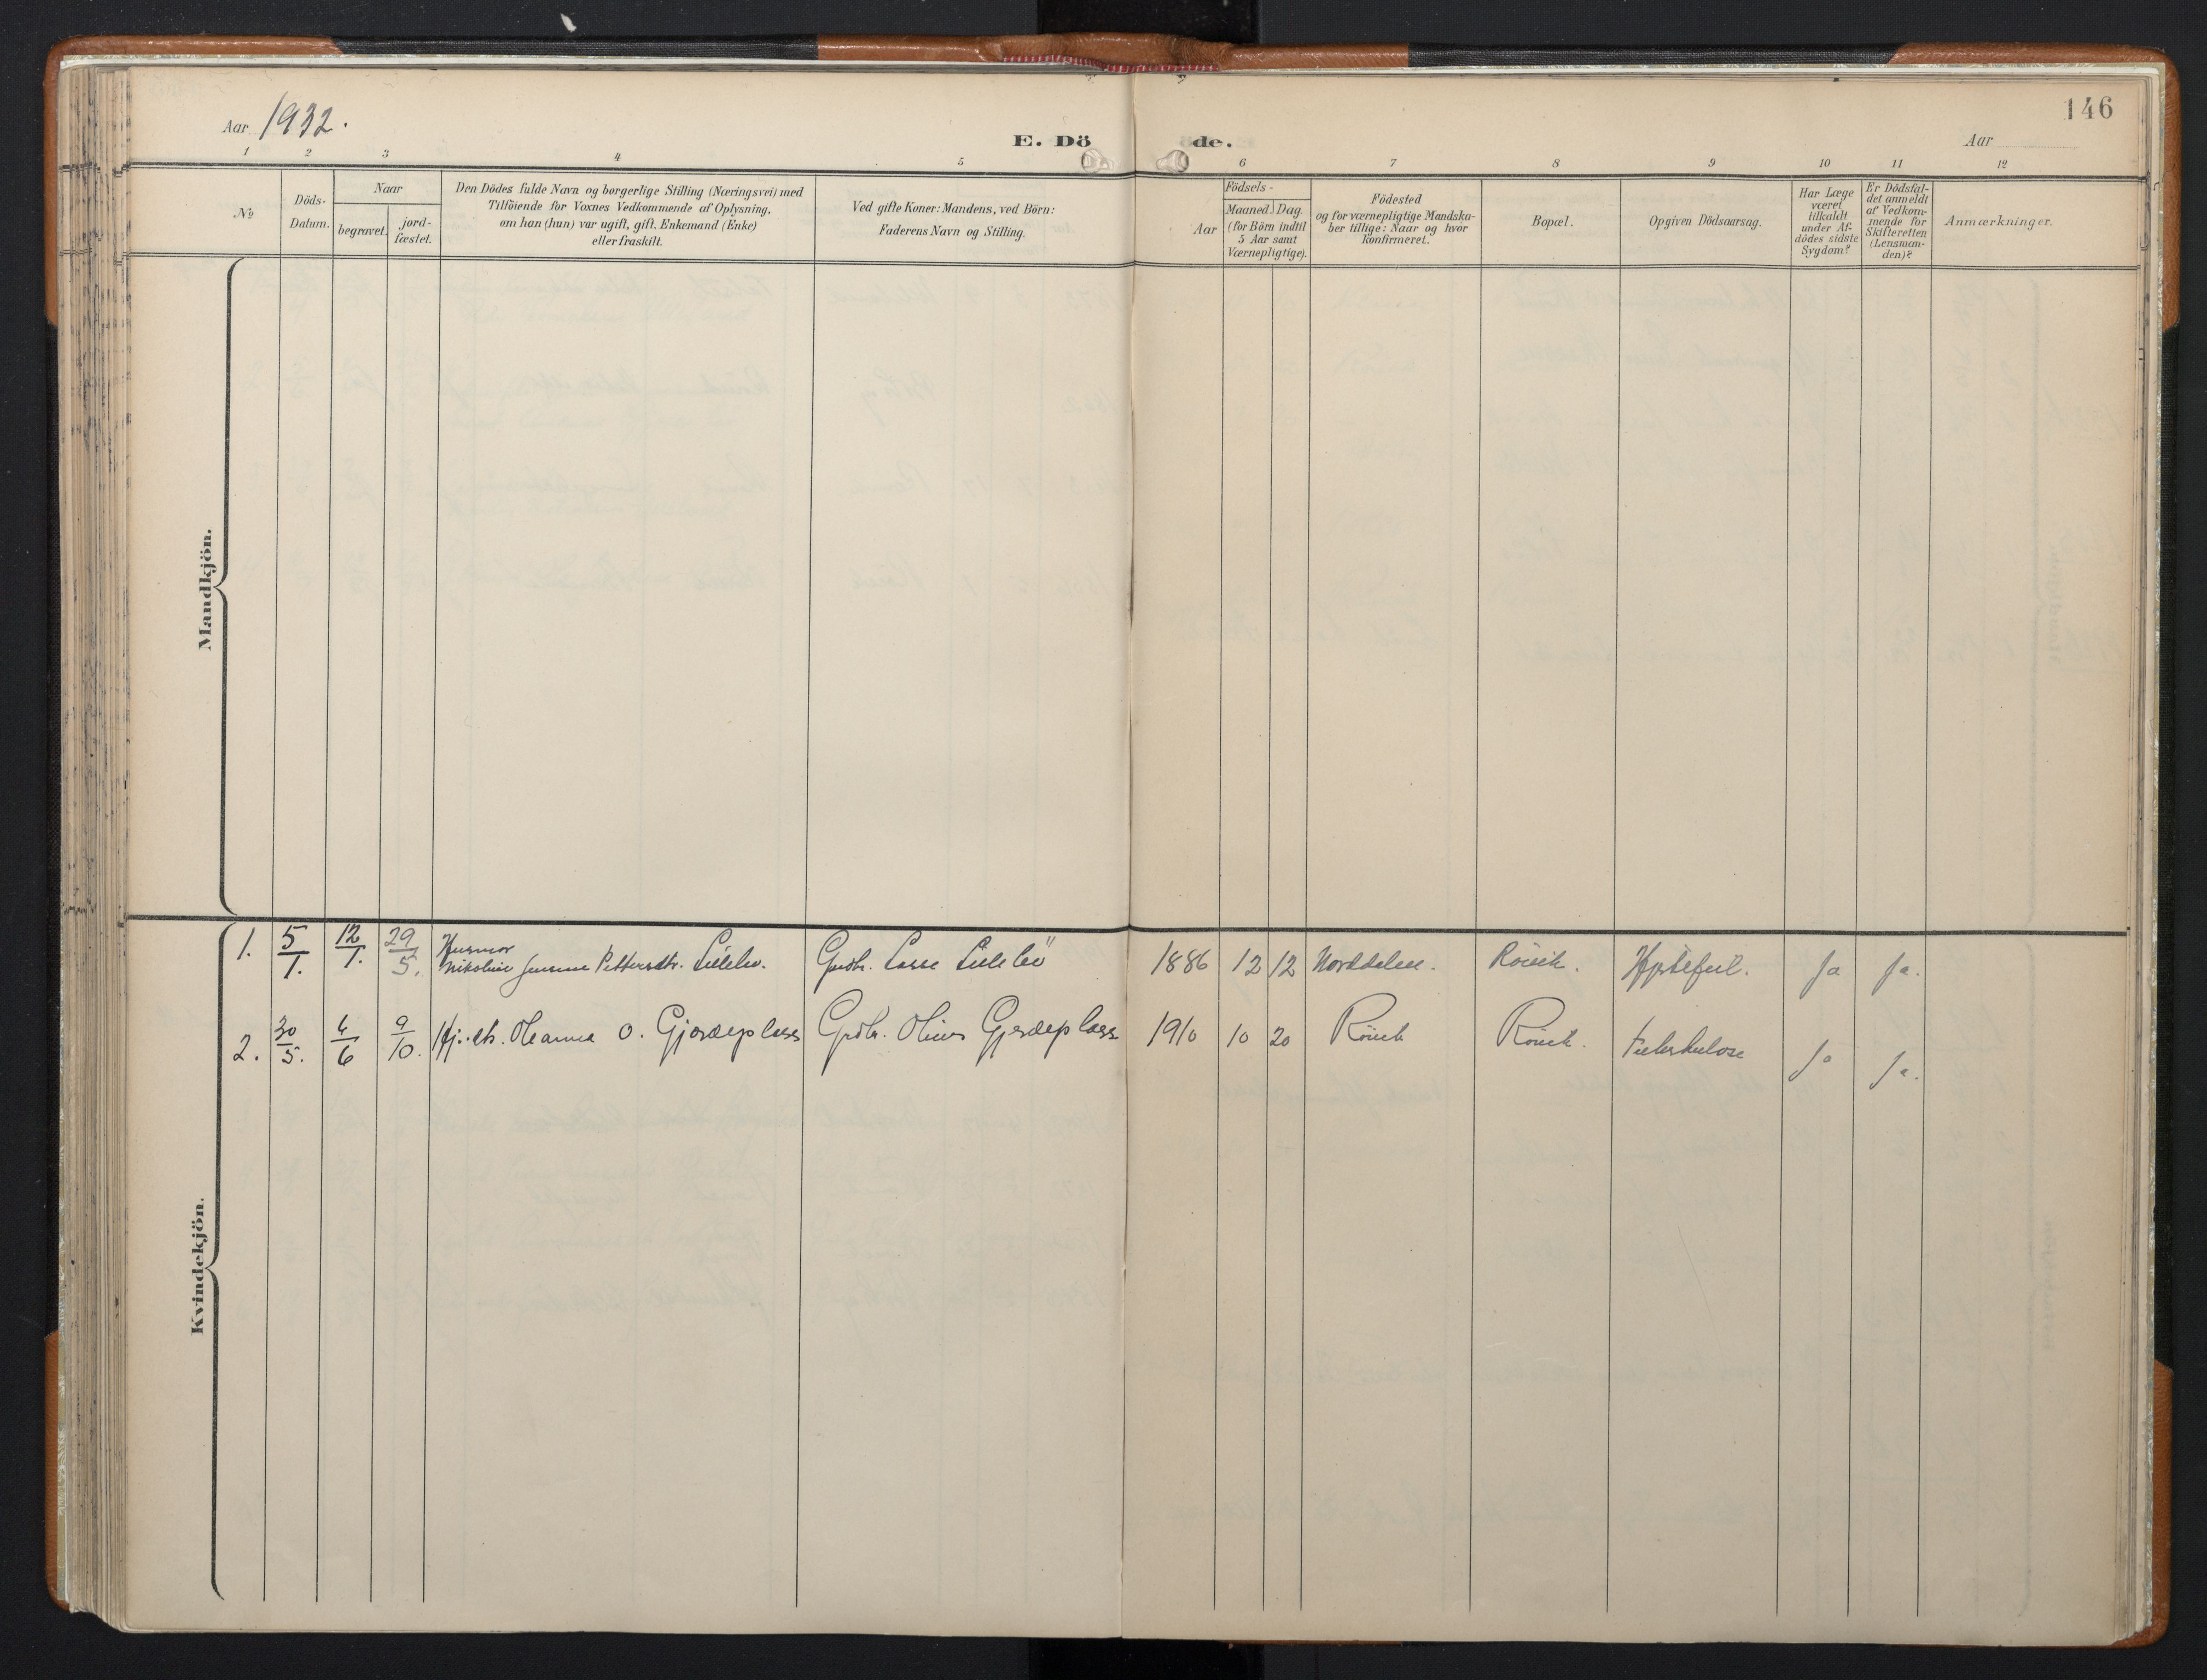 146
Aar 1932.
E. Dö de.
Aar
1 2 3 4 5 6 7 8 9 10 11 12
№
Döds-
Datum.
Naar
begravet.
jord-
fæstet.
Den Dödes fulde Navn og borgerlige Stilling (Næringsvei) med
Tilföiende for Voxnes Vedkommende af Oplysning,
om han (hun) var ugift, gift, Enkemand (Enke)
eller fraskilt.
Ved gifte Koner: Mandens, ved Börn:
Faderens Navn og Stilling.
Aar
Födsels-
Maaned. Dag.
(for Börn indtil
5 Aar samt
Værnepligtige).
Födested
og for værnepligtige Mandska-
ber tillige: Naar og hvor
konfirmeret.
Bopæl.
Opgiven Dödsaarsag.
Har Læge
været
tilkaldt
under Af-
dödes sidste
Sygdom?
Er Dödsfal-
det anmeldt
af Vedkom-
mende for
Skifteretten
(Lensman-
den)?
Anmærkninger.
Mandkjön.
Kvindekjön.
1. 5/1. 12/1. 29/5. Husmor
Nikoline Pettersdtr. Lillebö. Gardbr. Lasse Lillebö 1886 12 12 Norddalen. Hjertefeil. Ja Ja.
2. 30/5. 4/6 9/10. Hj. dtr. Oleanna O. Gjerdeplass Grdbr. Gjerdeplass 1910 10 20 Tuberkulose Ja Ja.